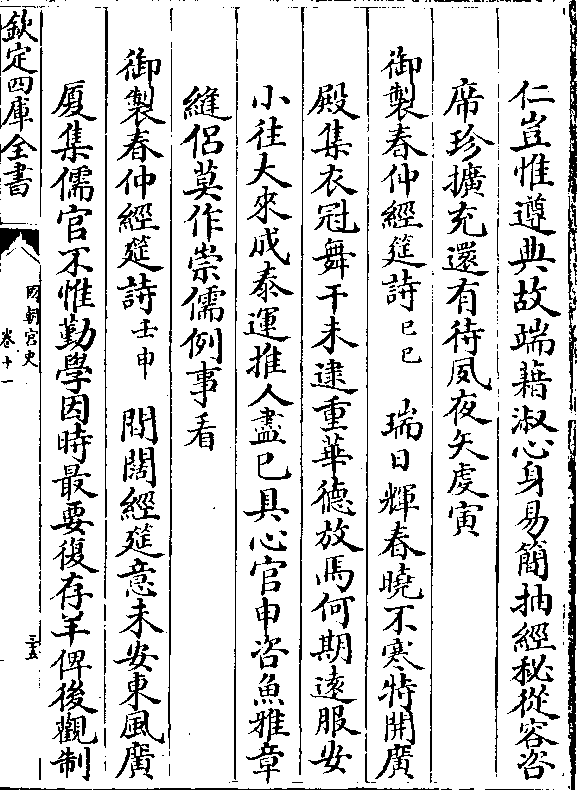 仁豈惟遵典故端藉淑心身易簡抽經秘從容咨
席珍擴充還有待夙夜矢虔寅
御製春仲經筵詩己巳 瑞日輝春曉不寒特開廣
殿集衣冠舞干未逮重華徳放馬何期遠服安
小往大來成泰運推人盡己具心官申咨魚雅章
縫侣莫作崇儒例事看
御製春仲經筵詩壬申 間闊經筵意未安東風廣
厦集儒官不惟勤學因時最要復存羊俾後觀制
欽定四庫全書
國朝宮史
卷十一
三五